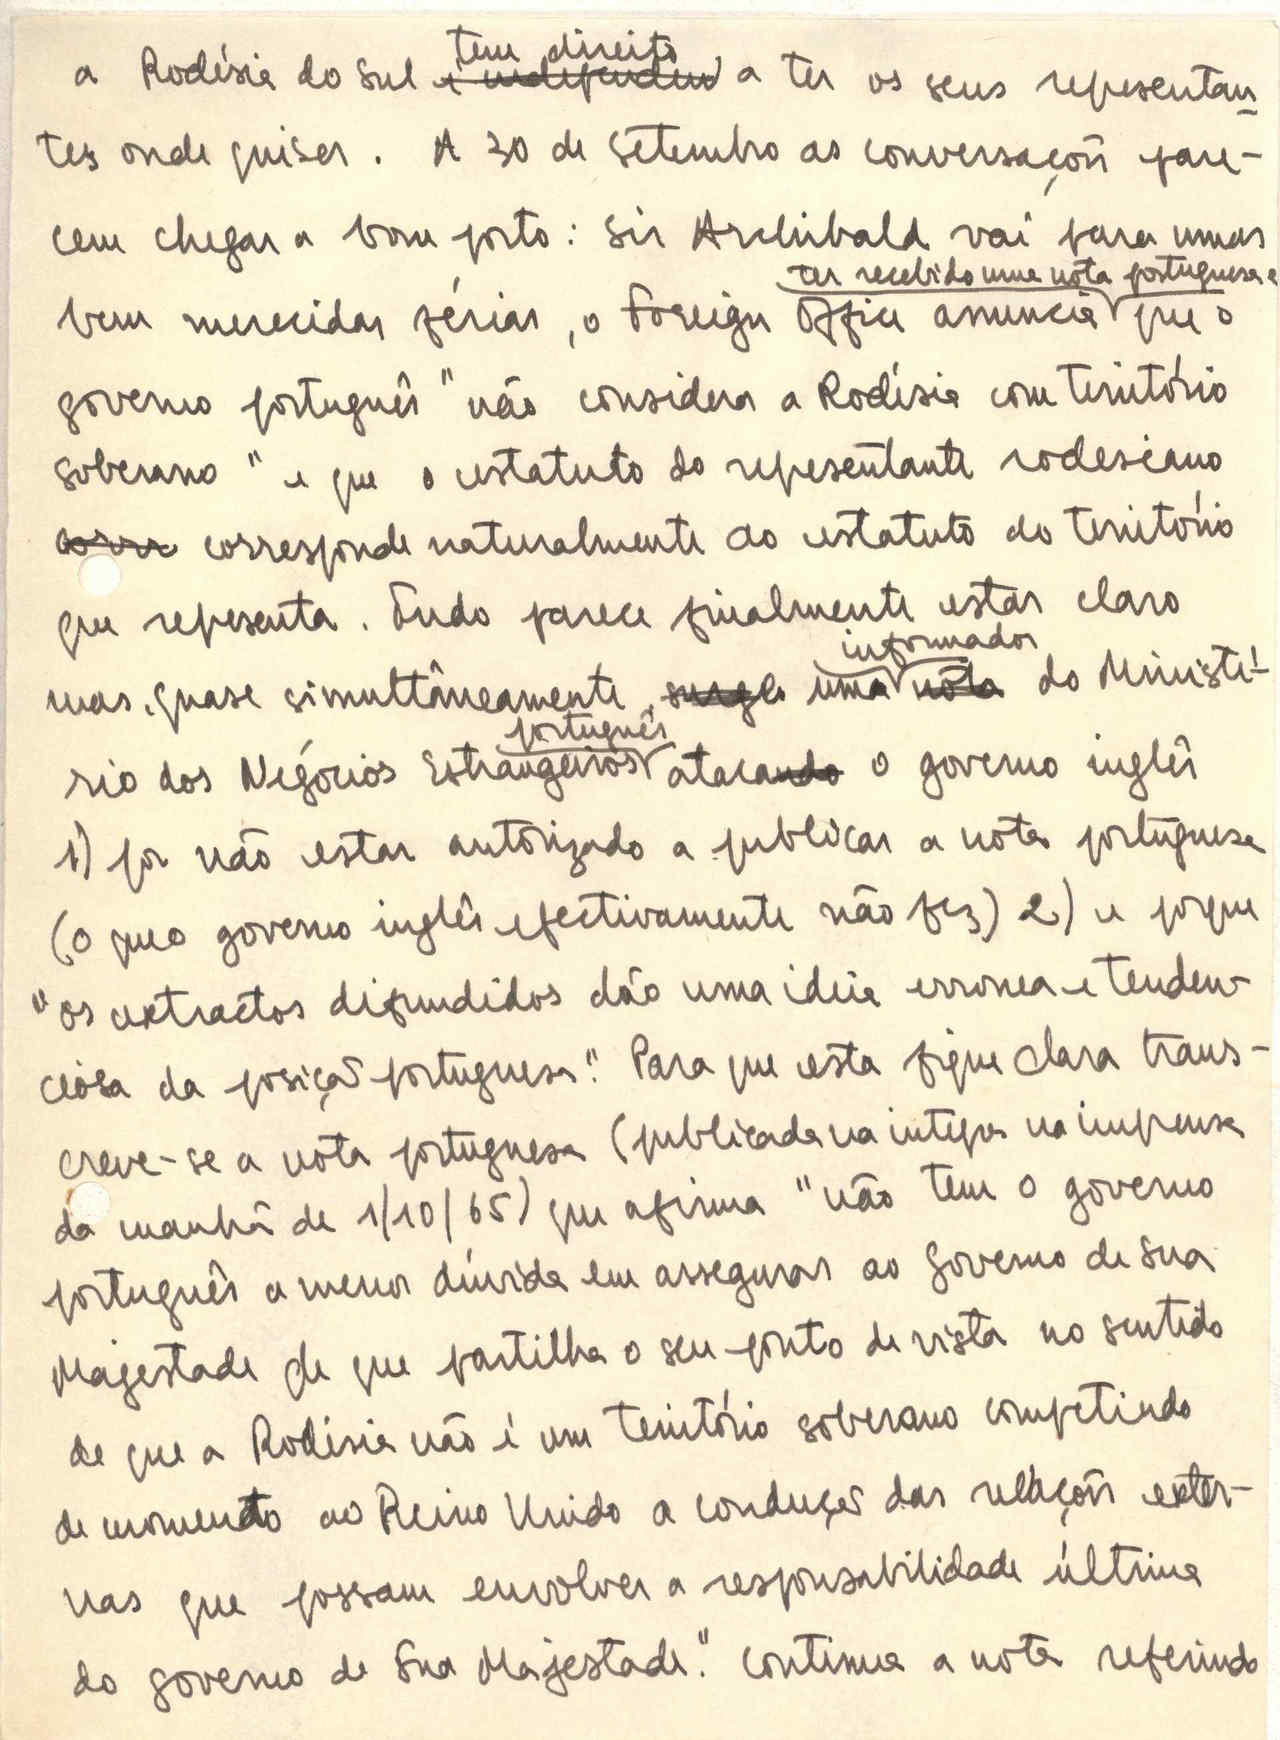 tem direito
a Rodésia do Sul é independen a ter os seus representan
tes onde quiser. A 30 de Setembro as conversações pare-
cem chegar a bom porto: Sir Archibald vai para umas
ter recebido uma nota portuguesa e
bem merecidas férias, o Foreign Office anuncia que o
governo português "não considera a Rodésia com território
soberano" e que o estatuto do representante rodesiano
corresponde naturalmente ao estatuto do território
que representa. Tudo parece finalmente estar claro
informador
mas, quase simultâneamente, surge uma nota do Ministé-
português
rio dos Negócios Estrangeiros atacando o governo inglês
1) por não estar autorizado a publicar a nota portuguesa
(o que o governo inglês efectivamente não fez) 2) e porque
"os extractos difundidos dão uma ideia erronea e tenden-
ciosa da posição portuguesa". Para que esta fique clara trans-
creve-se a nota portuguesa (publicada na integra na imprensa
da manhã de 1/10/65) que afirma "não tem o governo
português a menor dúvida em assegurar ao governo de Sua
Majestade de que partilha o seu ponto de vista no sentido
de que a Rodésia não é um território soberano competindo
de momento ao Reino Unido a condução das relações exter-
nas que possam envolver a responsabilidade última
do governo de Sua Majestade". Continua a nota referindo